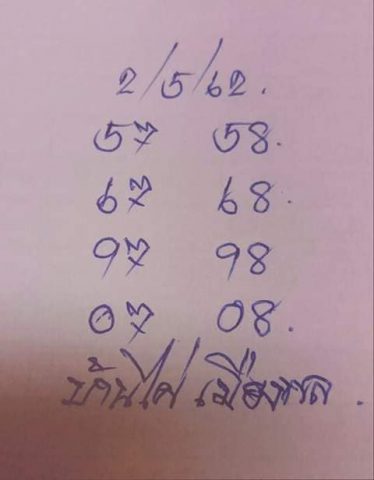 2/5/62.
57 58.
67 68.
97 98
07 08.
บ้านไผ่ เมืองพล.